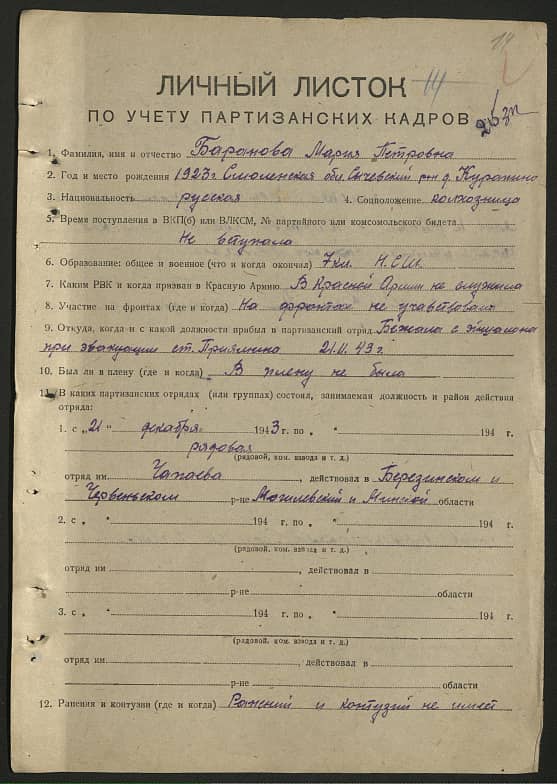 14
ЛИЧНЫЙ ЛИСТОК 14
ПО УЧЕТУ ПАРТИЗАНСКИХ КАДРОВ
1. Фамилия, имя и отчество Баранова Мария Петровна
2. Год и место рождения 1923г Смоленская обл. Сычевский рн д.
3. Национальность русская 4. Соцположение колхозница
5. Время поступления в ВКП(б) или ВЛКСМ, № партийного или комсомольского билета
Не вступала
6. Образование: общее и военное (что и когда окончил) 7кл. Н.С.Ш.
7. Каким РВК и когда призван в Красную Армию В Красной Армии не служила
8. Участие на фронтах (где и когда) На фронтах не учавствовала
9. Откуда, когда и с какой должности прибыл в партизанский отряд Бежала с эшалона
при эвакуации ст. 43 г.
10. Был ли в плену (где и когда) В плену не была
11. В каких партизанских отрядах (или группах) состоял, занимаемая должность и район действия
отряда:
1. с „21" декабря 1943 г. по „ " 194 г.
рядовая
(рядовой, ком. взвода и т. д.)
отряд им. Чапаева, действовал в Березинском и
Червеньском р-не Могилевской и Минской области
2. с „ " 194 г. по „ " 194 г.
(рядовой, ком. взвода и т. д.)
отряд им , действовал в
р-не области
3. с „ " 194 г. по „ " 194 г.
(рядовой, ком. взвода и т. д.)
отряд им , действовал в
р-не области
12. Ранения и контузии (где и когда) Ранений и контузий не имеет